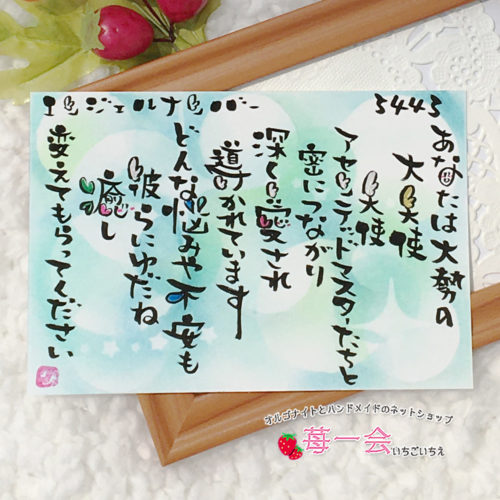 エンジェルナンバー 5443
あなたは大勢の
大天使
天使
アセンデッドマスターたちと
密につながり
深く愛され
導かれています
どんな悩みや不安も
彼らにゆだね
癒し
変えてもらってください
オルゴナイトとハンドメイドのネットショップ
苺一会 いちごいちえ